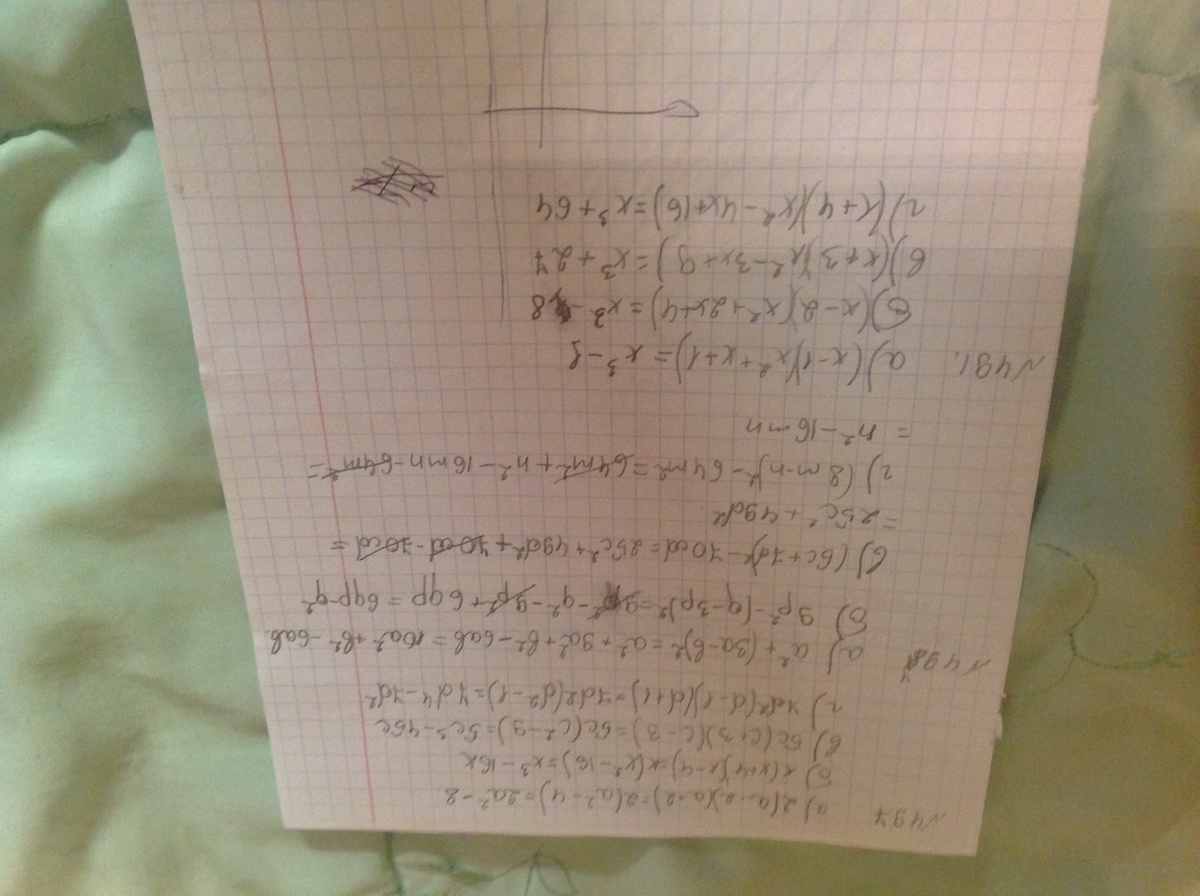 №497
а) 2(a-2)(a+2)=2(a²-4)=2a²-8
б) x(x+4)(x-4)=x(x²-16)=x³-16x
в) 5c(c+3)(c-3)=5c(c²-9)=5c³-45c
г) 7d²(d-1)(d+1)=7d²(d²-1)=7d⁴-7d²
№498
а) a²+(3a-b)²=a²+9a²+b²-6ab=10a²+b²-6ab
б) 9p²-(q-3p)²=9p²-q²-9p²+6qp=6qp-q²
в) (5c+7d)²-70cd=25c²+49d²+70cd-70cd=
=25c²+49d²
г) (8m-n)²-64m²=64m²+n²-16mn-64m²=
=n²-16mn
№491.
а) (x-1)(x²+x+1)=x³-1
б) (x-2)(x²+2x+4)=x³-8
в) (x+3)(x²-3x+9)=x³+27
г) (x+4)(x²-4x+16)=x³+64